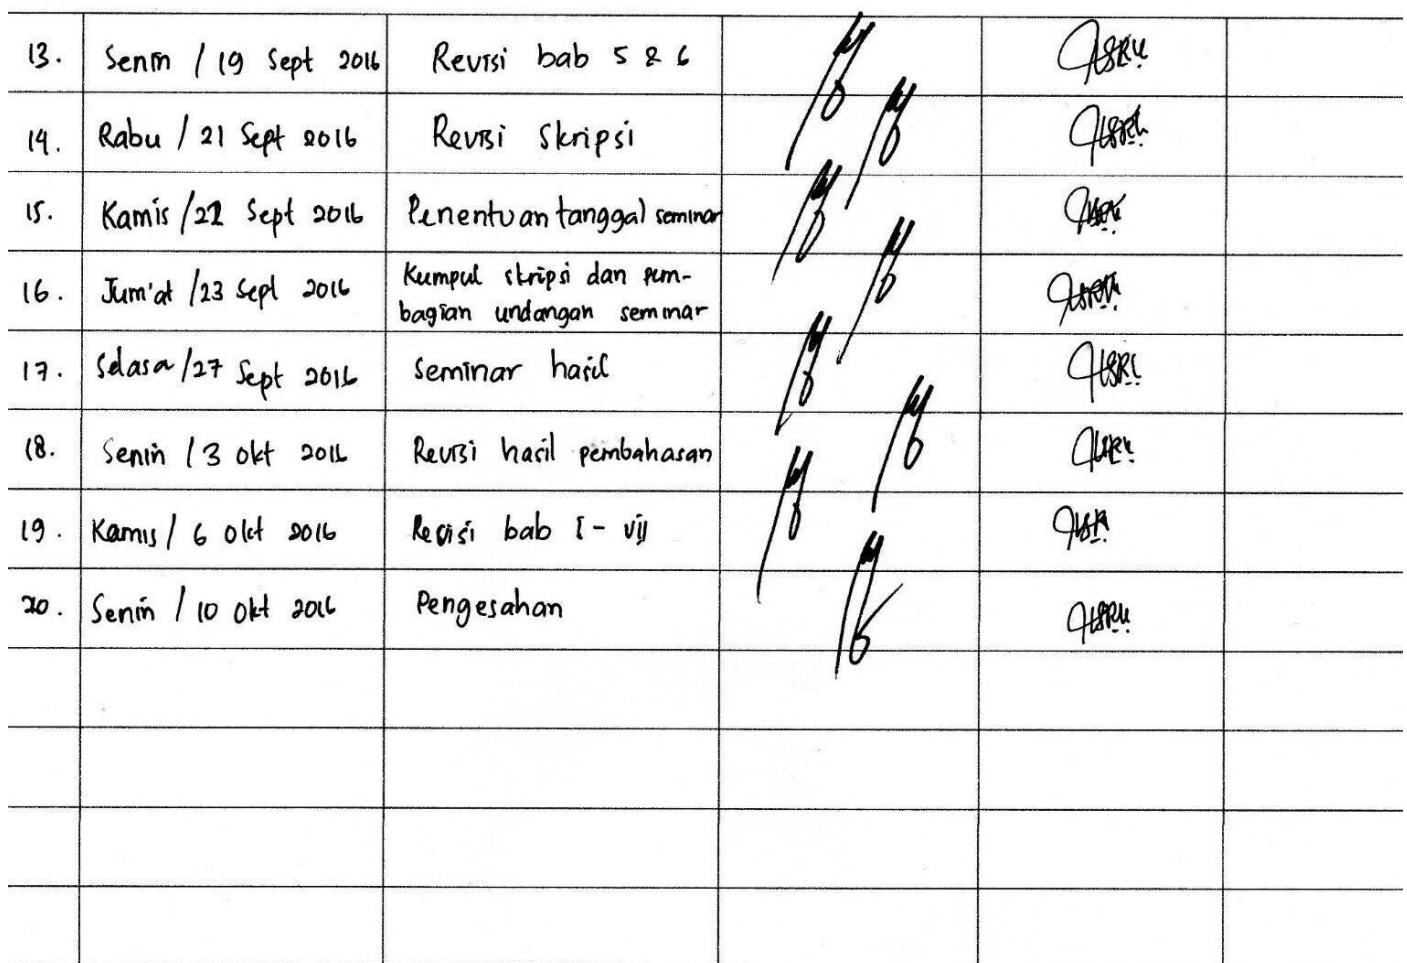 13. Senin / 19 Sept 2016 Revisi bab 5 & 6
14. Rabu / 21 Sept 2016 Revisi Skripsi
15. Kamis / 22 Sept 2016 Penentuan tanggal seminar
16. Jum'at / 23 Sept 2016 Kumpul skripsi dan pem-
bagian undangan seminar
17. Selasa / 27 Sept 2016 Seminar hasil
18. Senin / 3 Okt 2016 Revisi hasil pembahasan
19. Kamis / 6 Okt 2016 Revisi bab I - VII
20. Senin / 10 Okt 2016 Pengesahan